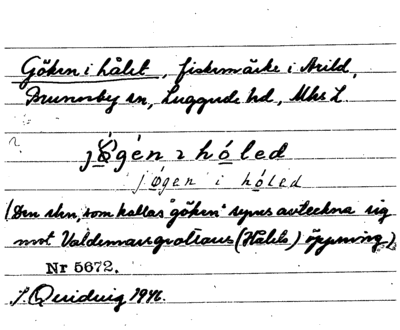 Göken i hålet, fiskemärke i Arild,
Brunnsby sn, Luggude hd, Mhs L.
?
jǿgén ı hóled
jøgen i hóled
(Den sten, som kallas "göken" synes avteckna sig
mot Valdemarsgrottans (Hålets) öppning.)
Nr 5672.
1946.